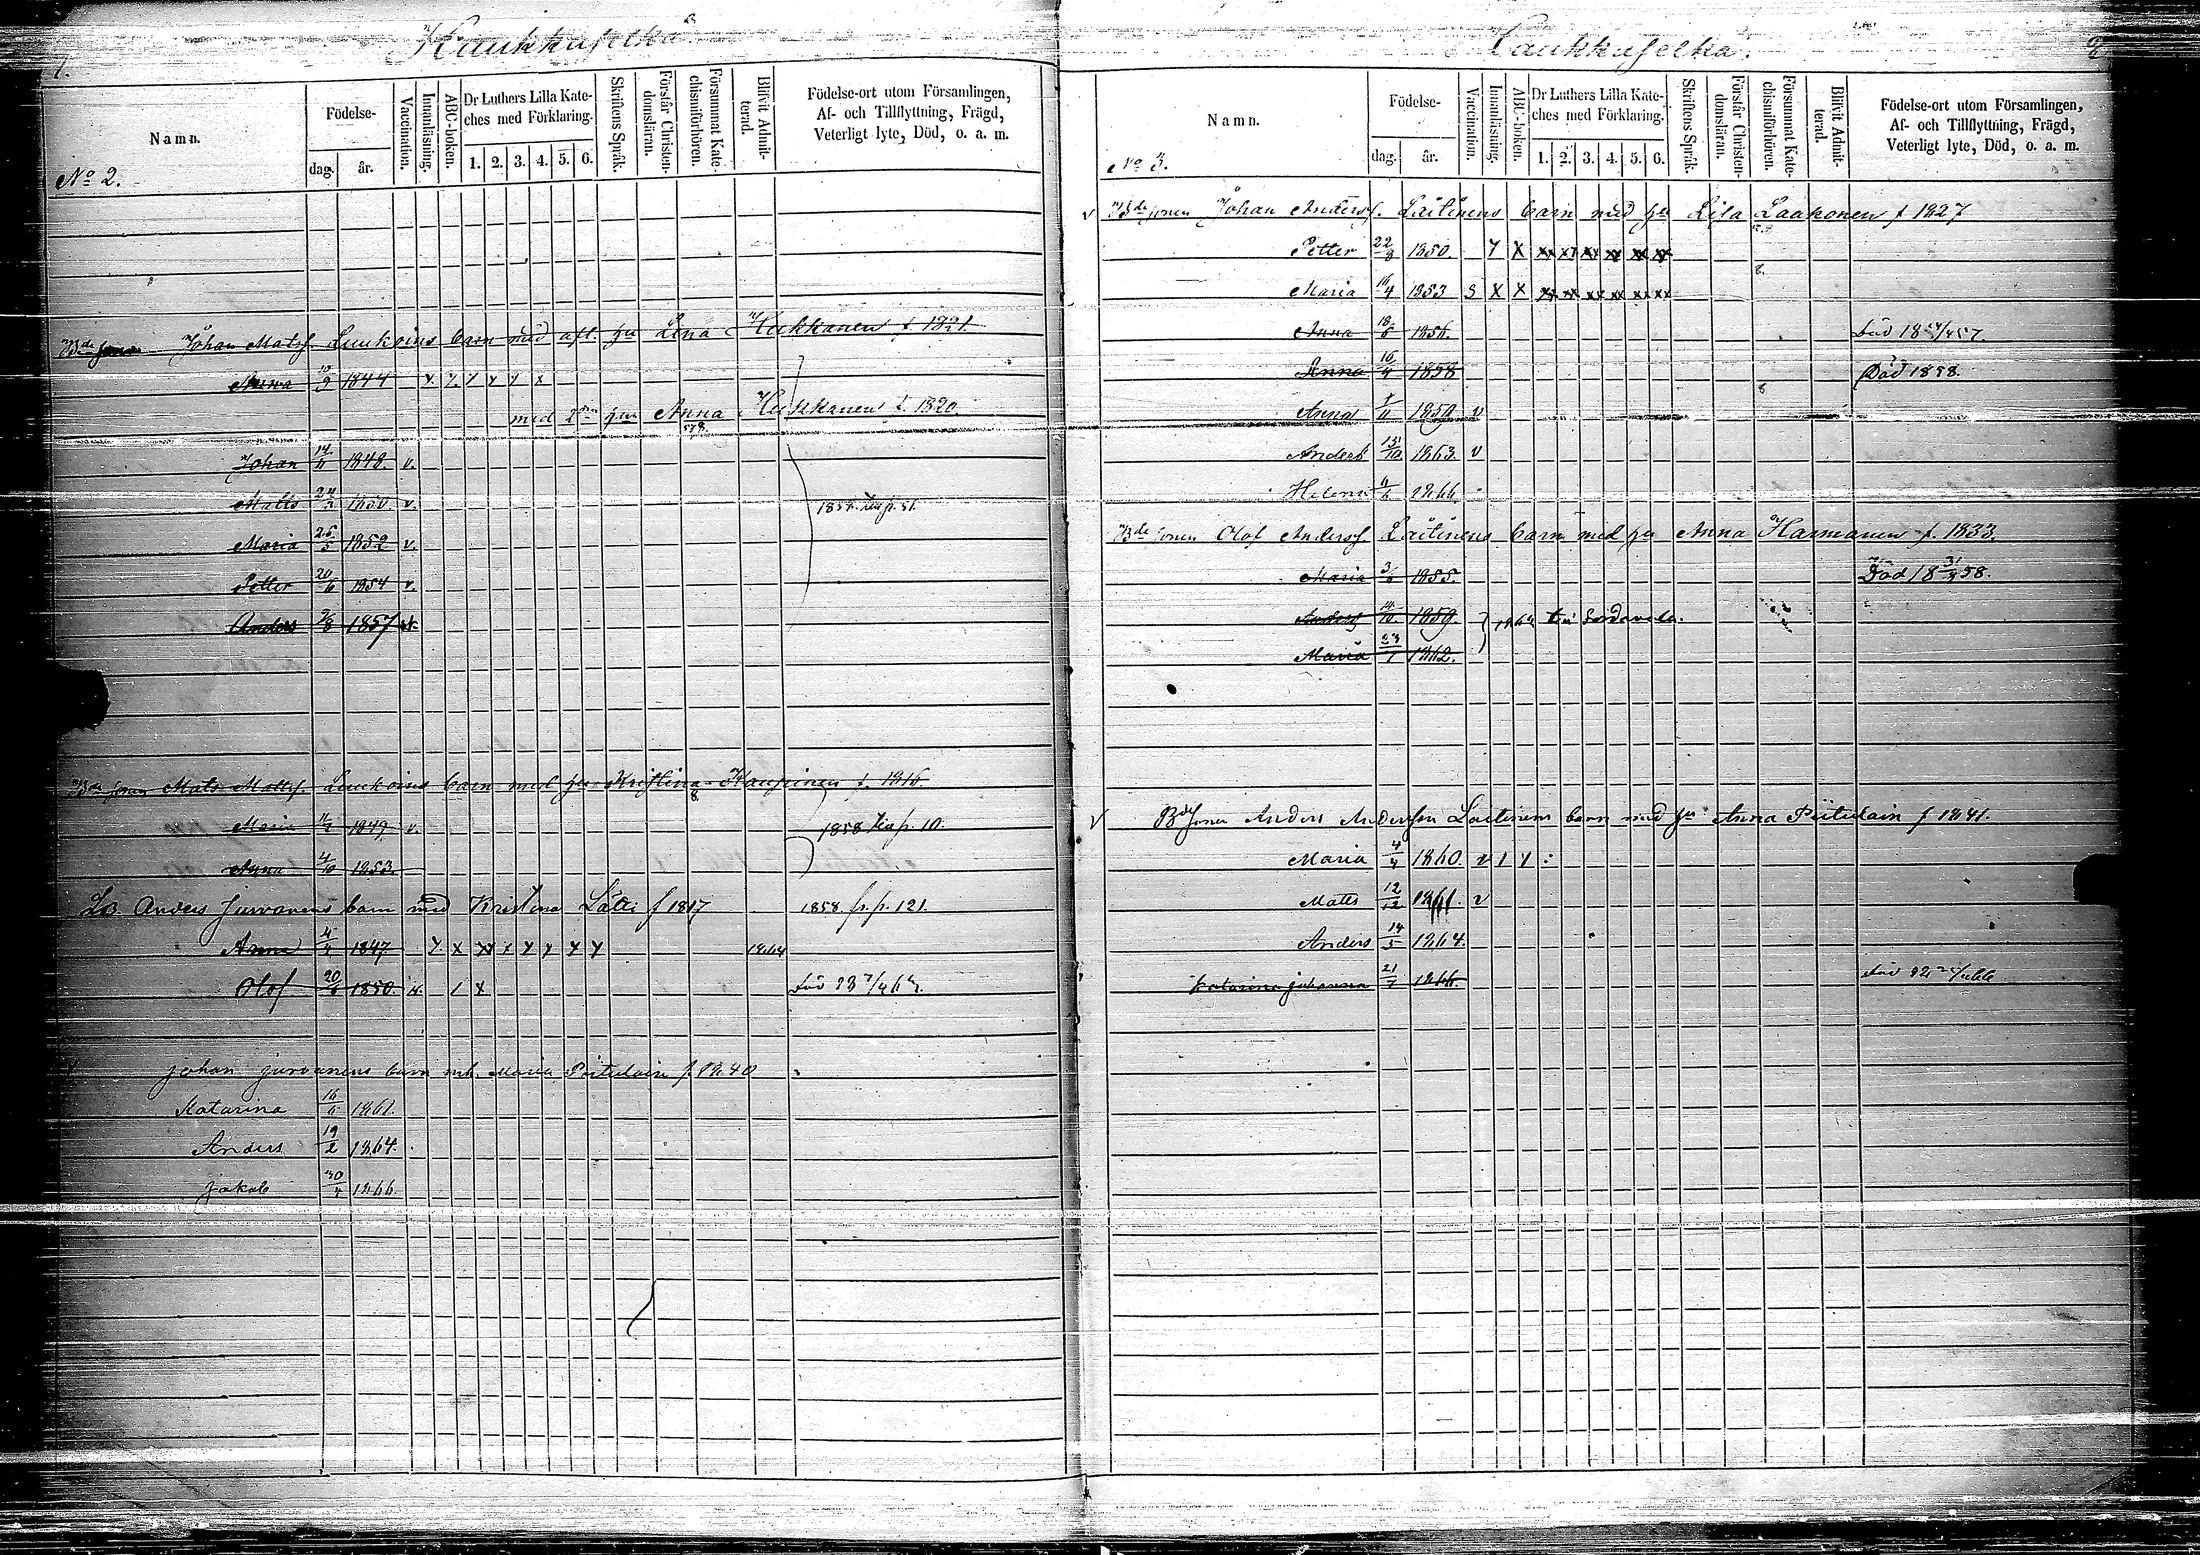 1.
Kaukkuselkä
Namn.
Födelse-
dag.
år.
Vaccination.
Innanläsning.
ABC-boken.
Dr Luthers Lilla Kate-
ches med Förklaring.
1. 2. 3. 4. 5. 6.
Skriftens Språk.
Förstår Christen-
domsläran.
Försummat Kate-
chismiförhören.
Blifvit Admit-
terad.
Födelse-ort utom Församlingen,
Af- och Tillflyttning, Frägd,
Veterligt lyte, Död, o. a. m.
No 2.
Johan Matsf. Luukoins barn med afl. hu Lena Heikkanen f. 1821.
Anna 10/9 1844
med 2dra hu Anna Heikkanen f. 1820
Johan 14/11 1848. v.
Matts 24/3 1850 v.
Maria 25/5 1852 v.
Petter 20/6 1854 v.
Anders 2/8 1857
Mats Mattsf. Luukoins barn med hu Kristina Kaupinen f. 1816
Maria 11/2 1849 v. 1858 p. 10.
Anna 4/10 1853.
Ls. Anders Jurvanens barn med Kristina Lätti f 1817 1858 fr. p. 121.
Anna 4/4 1847 1864
Olof 20/6 1850.
Johan Jurvanens barn m. Maria Piitulain f. 1840
Katarina 16/6 1861.
Anders 19/2 1864.
Jakob 30/4 1866.
Laukkuselkä.
2
Namn.
Födelse-
dag.
år.
Vaccination.
Innanläsning.
ABC-boken.
Dr Luthers Lilla Kate-
ches med Förklaring.
1. 2. 3. 4. 5. 6.
Skriftens Språk.
Förstår Christen-
domsläran.
Försummat Kate-
chismiförhören.
Blifvit Admit-
terad.
Födelse-ort utom Församlingen,
Af- och Tillflyttning, Frägd,
Veterligt lyte, Död, o. a. m.
No 3.
Bdesonen Johan Andersf. Laitinens barn med hu Lisa Laakonen f 1827
Petter 22/8 1850.
Maria 16/4 1853
Anna 18/6 1856.
Anna 16/4 1858 Död 1858.
Anna 1/11 1859 v
Anders 13/10 1863 v
Helena 6/6 1866
Bde sonen Olof Andersf Laitinens barn med hu Anna Harmanen f. 1833.
Maria 3/6 1855. Död 18 31/3 58.
Anders 14/10 1859. till Sordavala.
Maria 23/1 1862.
Bdesonen Anders Andersson Laitinens barn med hu Anna Piitulain f 1841.
Maria 4/4 1860.
Mats 12/12 1861 v
Anders 14/5 1864.
Katarina Johanna 21/7 1866.